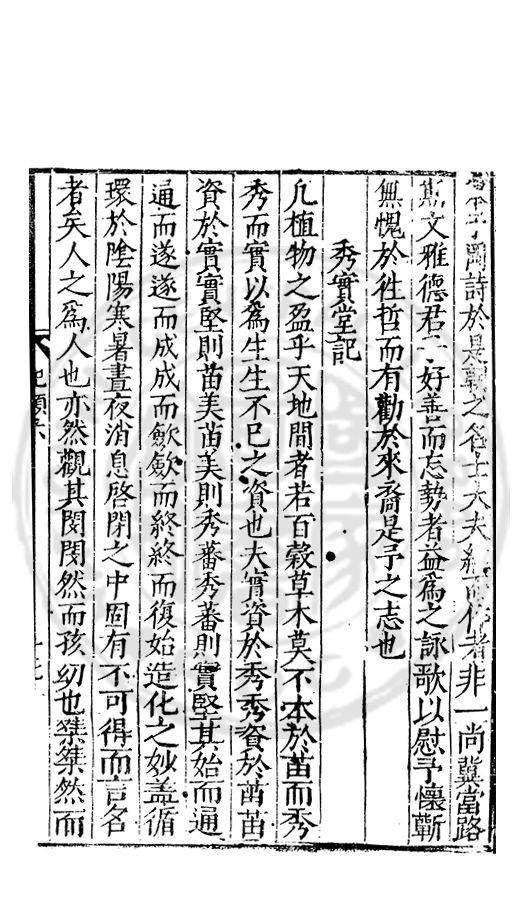 詩於是朝之名士大夫繼而作者非一尚冀當路
斯文雅德君子好善而忘勢者益爲之詠歌以慰予懷蘄
無愧於徃哲而有勸於來裔是予之志也
秀實堂記
凡植物之盈乎天地間者若百穀草木莫不本於苗而秀
秀而實以爲生生不已之資也夫實資於秀秀資於苗苗
資於實實堅則苗美苗美則秀蕃秀蕃則實堅其始而通
通而遂遂而成成而歛歛而終終而復始造化之妙盖循
環於陰陽寒暑晝夜消息啓閉之中固有不可得而言名
者矣人之爲人也亦然觀其閔閔然而孩幼也桀桀然而